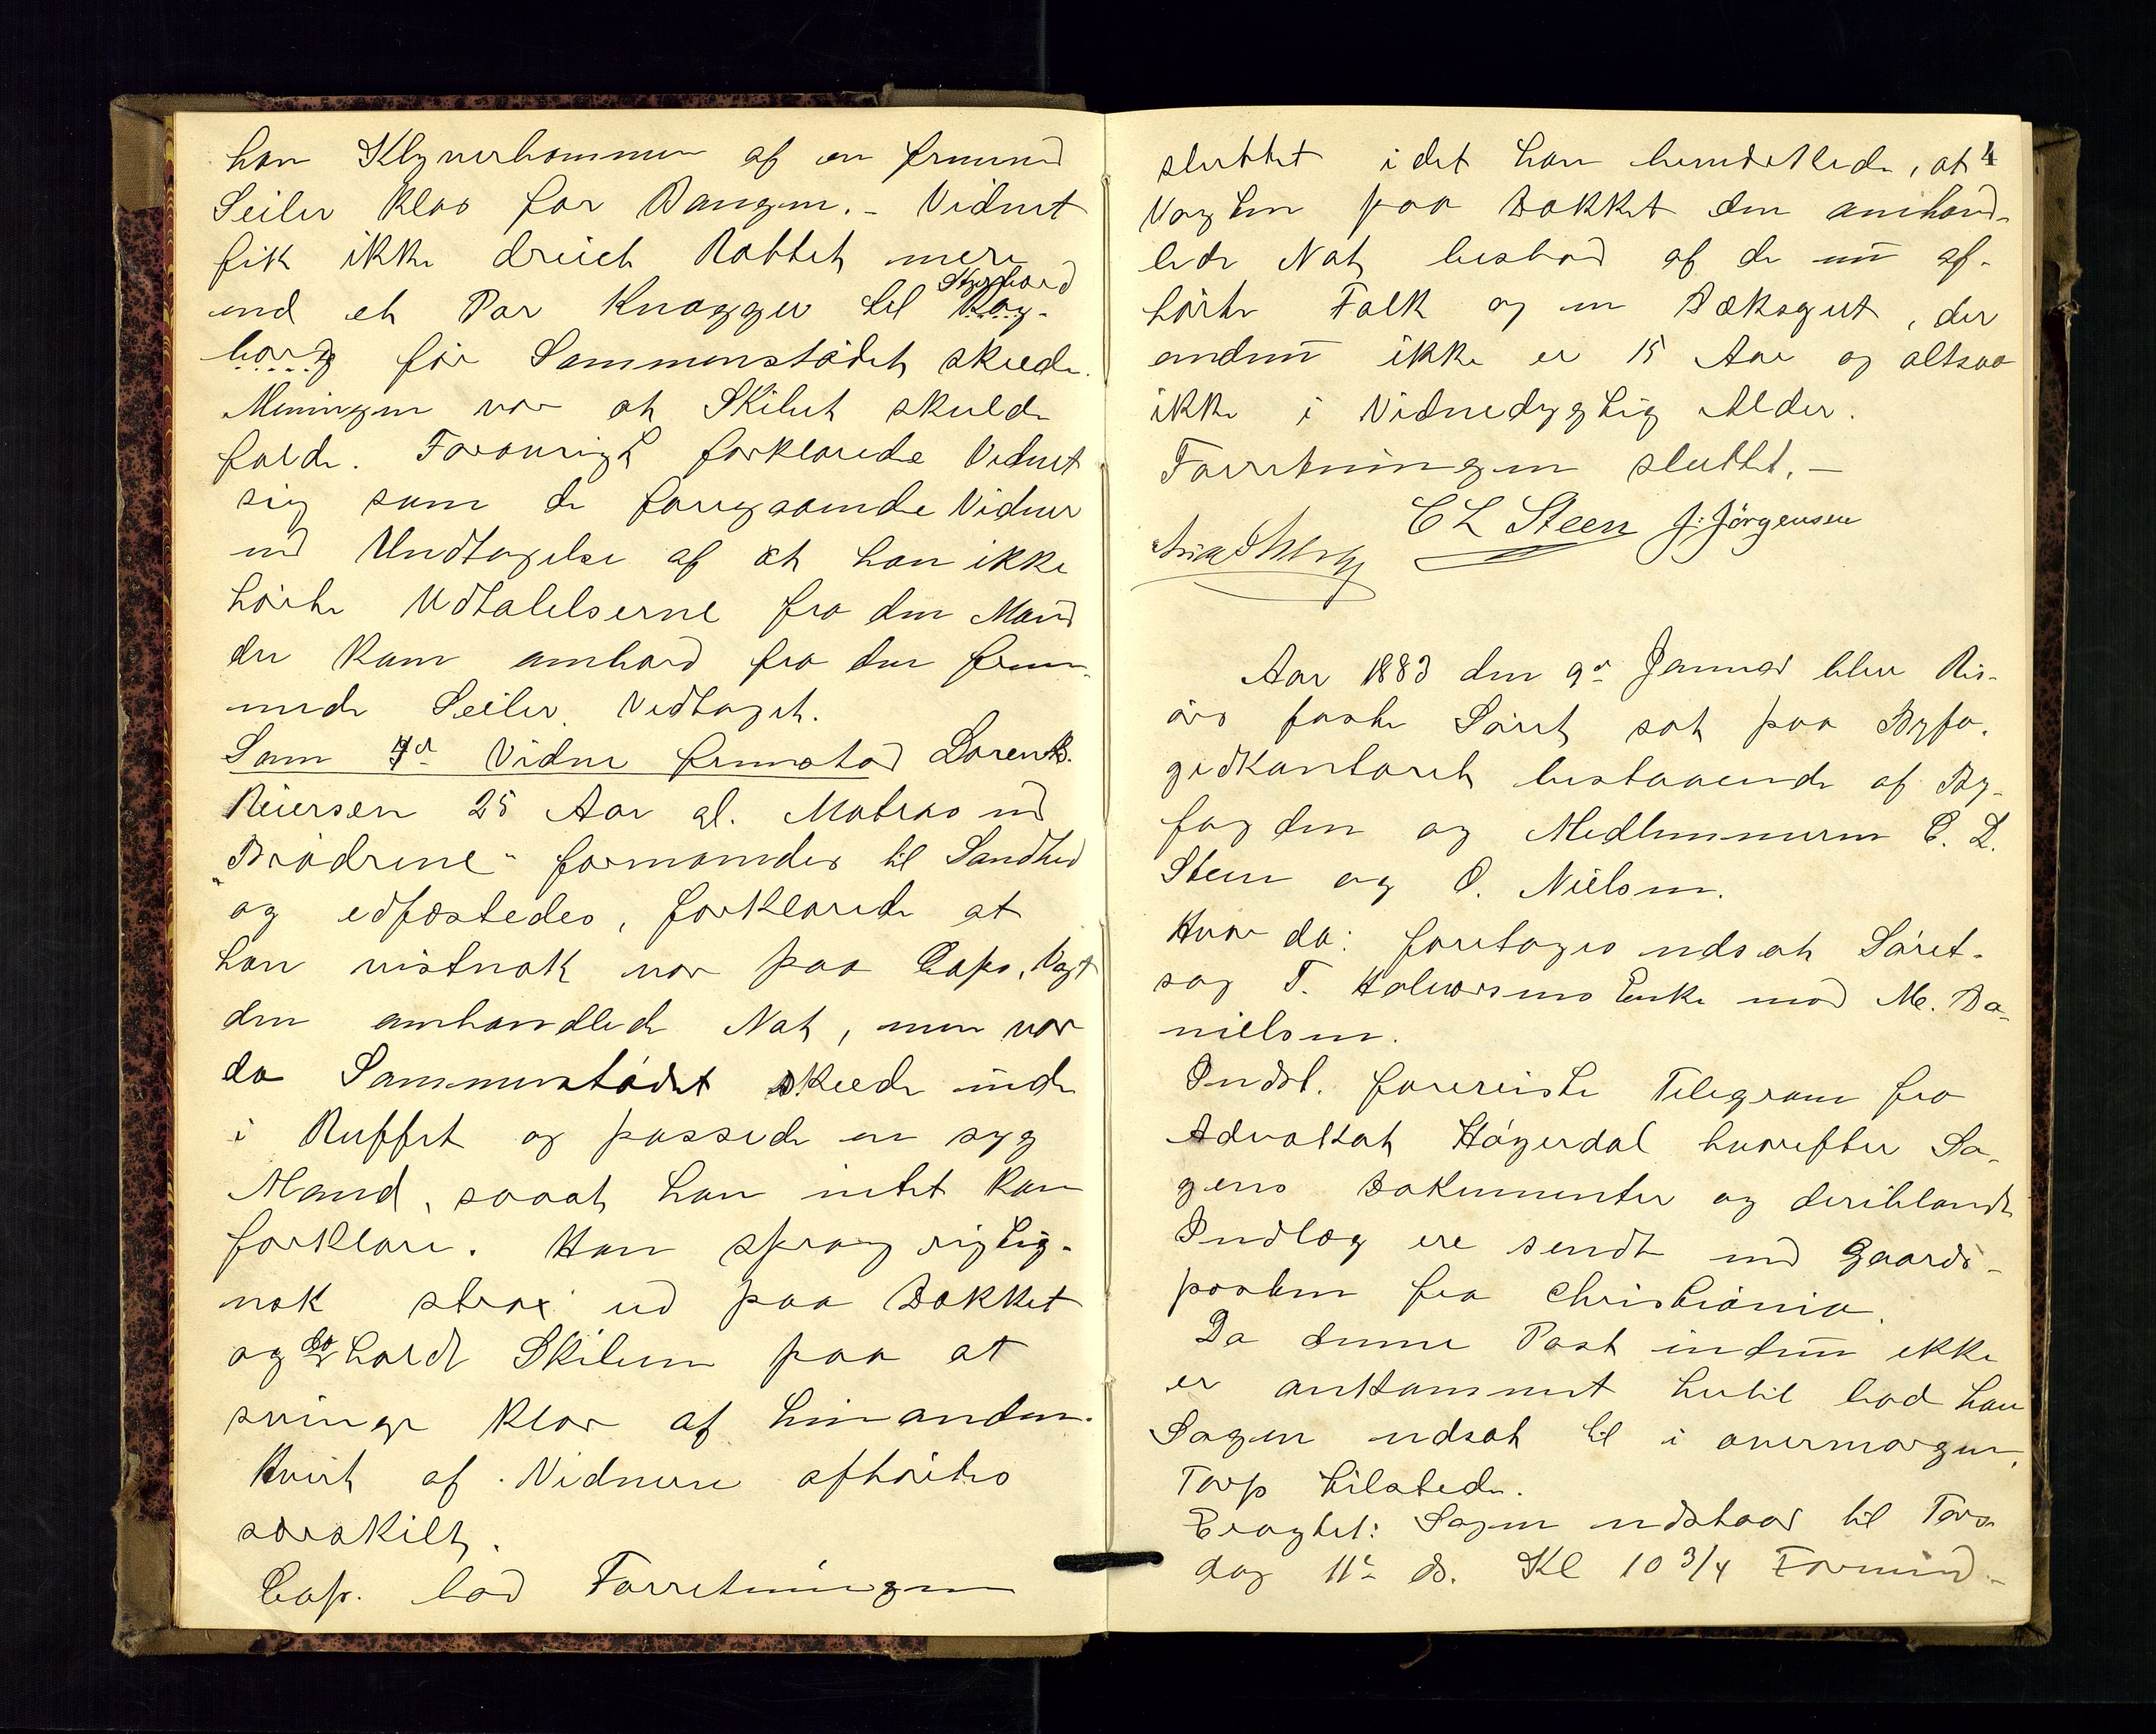 han Klyverbommen af en fremmed
Seiler klar for Baugen. - Vidnet
fik ikke dreiet Rattet mere
Styrbord
end et Par Knagger til Bag-
bord før Sammenstødet skede.
Meningen var at Skibet skulde
falde. Forøvrigt forklarede Vidnet
sig som de foregaaende Vidner
med Undtagelse af at han ikke
hørte Udtalelserne fra den Mand
der kom ombord fra den frem-
mede Seiler. Vedtaget.
Som 4de Vidne fremstod Lorents
Reiersen 25 Aar gl. Matros med
"Brødrene" formandes til Sandhed
og edfæstedes, forklarede at
han vistnok var paa Capt. Vagt
den omhandlede Nat, men var
da Sammenstødet skede inde
i Ruffet og passede en syg
Mand, saaat han intet kan
forklare. Han sprang rigtig-
nok strax ud paa Dækket
og da holdt Skibene paa at
svinge klar af hinanden.
Hvert af Vidnerne afhørtes
særskilt.
Capt. lod Forretningen
sluttet idet han bemærkede, at 4
Vagten paa Dækket den omhand-
lede Nat bestod af de nu af-
hørte Folk og en Dæksgut, der
endnu ikke er 15 Aar og altsaa
ikke i vidnedygtig Alder.
Forretningen sluttet. -
C L Steen J. Jörgensen
Aar 1883 den 9de Januar blev Ris-
ørs faste Søret sat paa Byfo-
gedkontoret bestaaende af By-
fogden og Medlemmerne C. L.
Steen og O. Nielsen.
Hvor da: foretoges udsat Søret-
sag T. Halvorsens Enke mod M. Da-
nielsen.
Indst. foreviste Telegram fra
Advokat Høyerdal hvorefter Sa-
gens Dokumenter og deriblandt
Indlæg ere sendt med Gaards-
posten fra Christiania.
Da denne Post endnu ikke
er ankommet hertil bad han
Sagen udsat til i overmorgen,
Torp tilstede.
Eragtet: Sagen udstaar til Tors-
dag 11te ds. Kl 10 3/4 Formid-